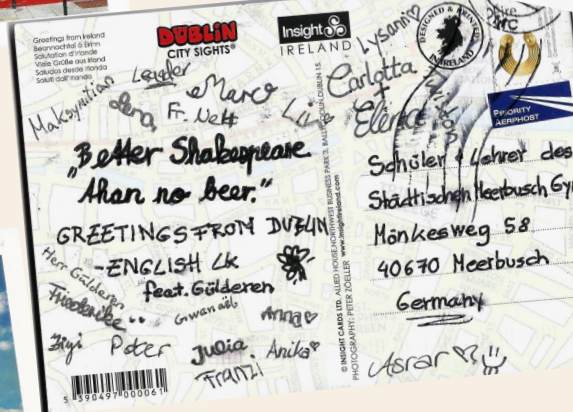 Greetings from Ireland
Beannachtaí ó Éirinn
Salutation d'Irlande
Viele Grüße aus Irland
Saludos desde Irlanda
Saluti dall'Irlanda
DUBLIN
CITY SIGHTS®
Insight
IRELAND
DESIGNED & PRINTED
IN IRELAND
PRIORITY
AERPHOST
Lysann
Carlotta
+
Elena
Maksymilian
Lena
Marco
Fr. Nett
„Better Shakespeare
than no beer.“
GREETINGS FROM DUBLIN
-ENGLISH LK
feat. Gülderen
Herr Gülderen
Friederike
Anna
Peter
Julia
Anika
Franzi
Asrar
Schüler & Lehrer des
Städtischen Meerbusch Gy
Mönkesweg 58
40670 Meerbusch
Germany
© INSIGHT CARDS LTD. ALLIED HOUSE, NORTHWEST BUSINESS PARK 3, BALLYCOOLIN, DUBLIN 15.
PHOTOGRAPHY: PETER ZOELLER www.insightireland.com
5 390497 000061